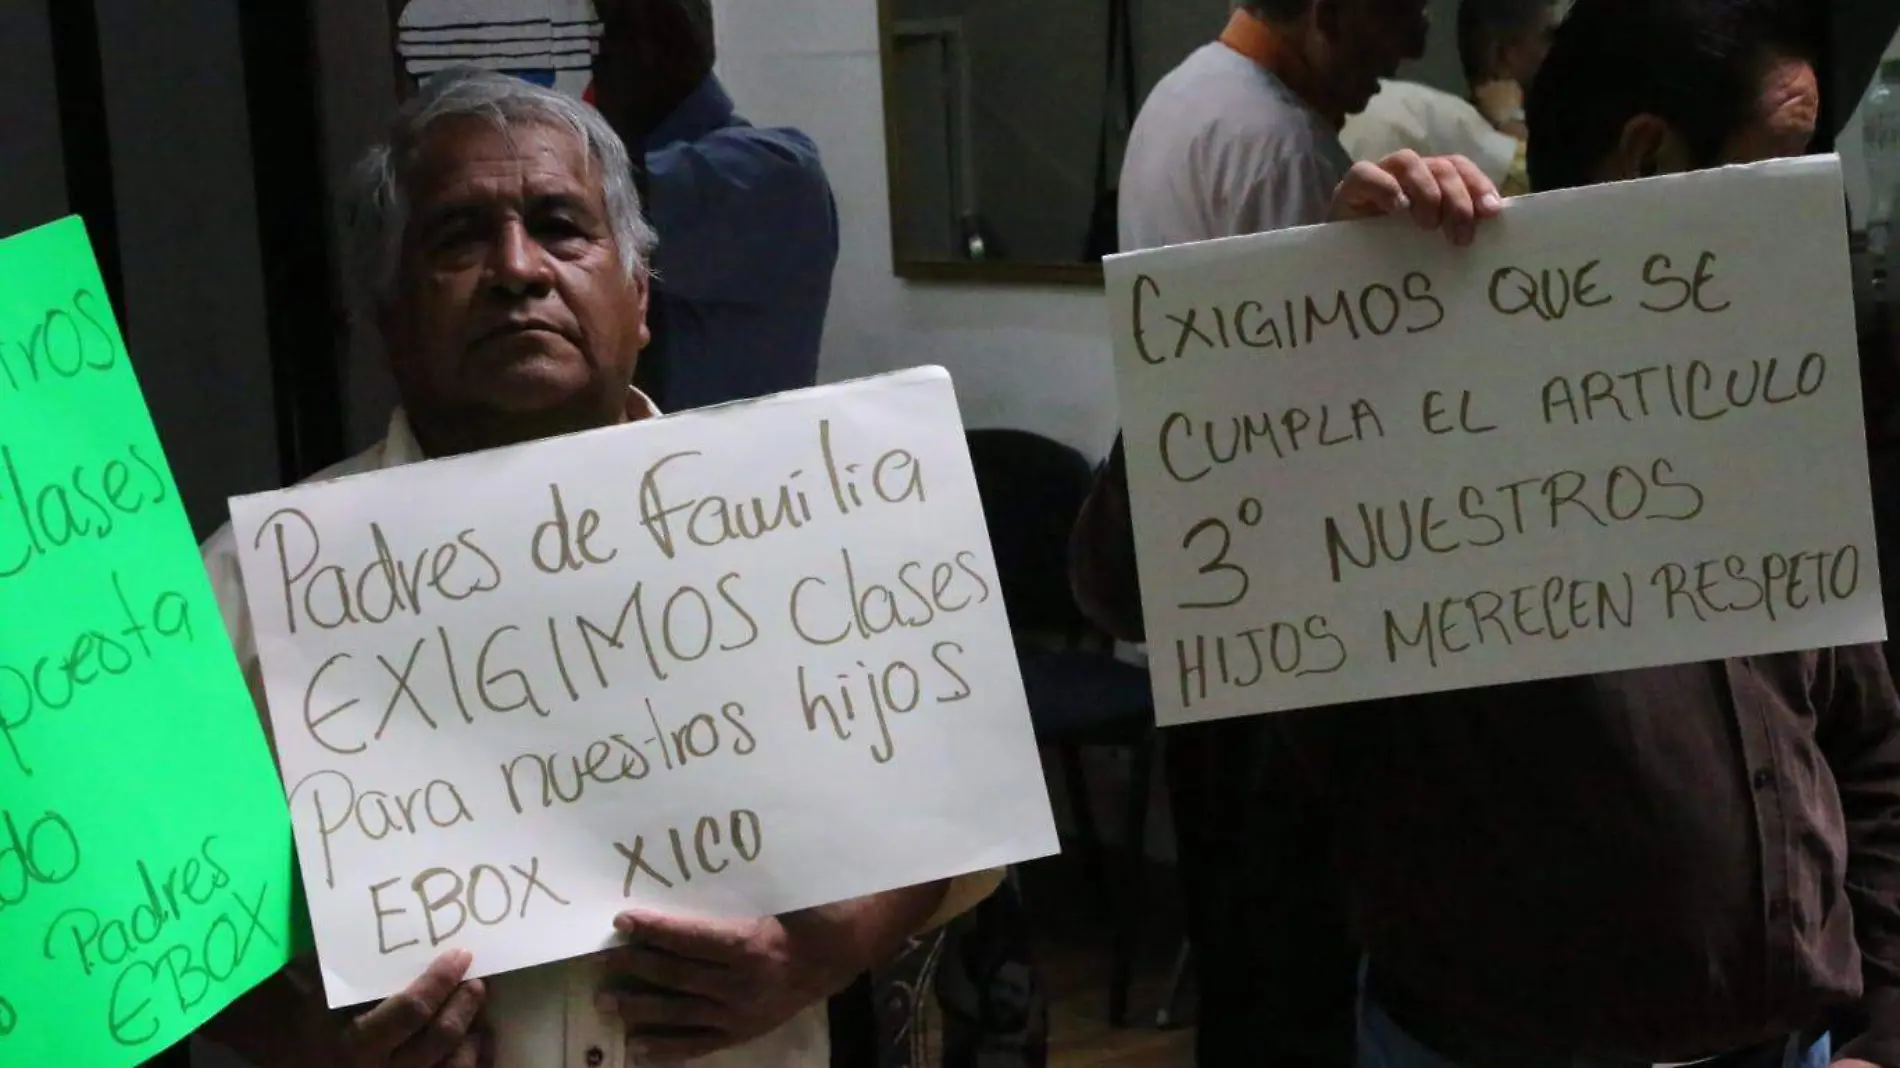 clases
Padres
EBOX
Padres de familia
EXIGIMOS clases
Para nuestros hijos
EBOX XICO
EXIGIMOS QUE SE
CUMPLA EL ARTICULO
3° NUESTROS
HIJOS MERECEN RESPETO